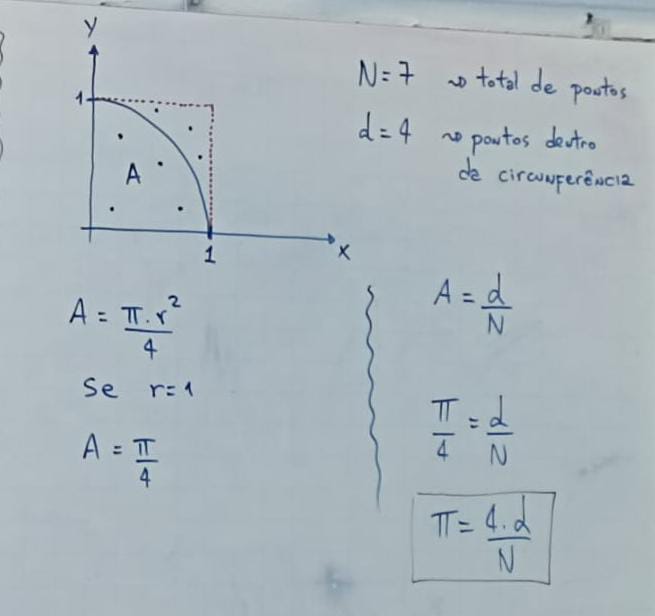 Y
1
A
1
X
N=7 ~> total de pontos
d=4 ~> pontos dentro
de circunferência
A = π.r²/4
Se r=1
A = π/4
A = d/N
π/4 = d/N
π = 4.d/N